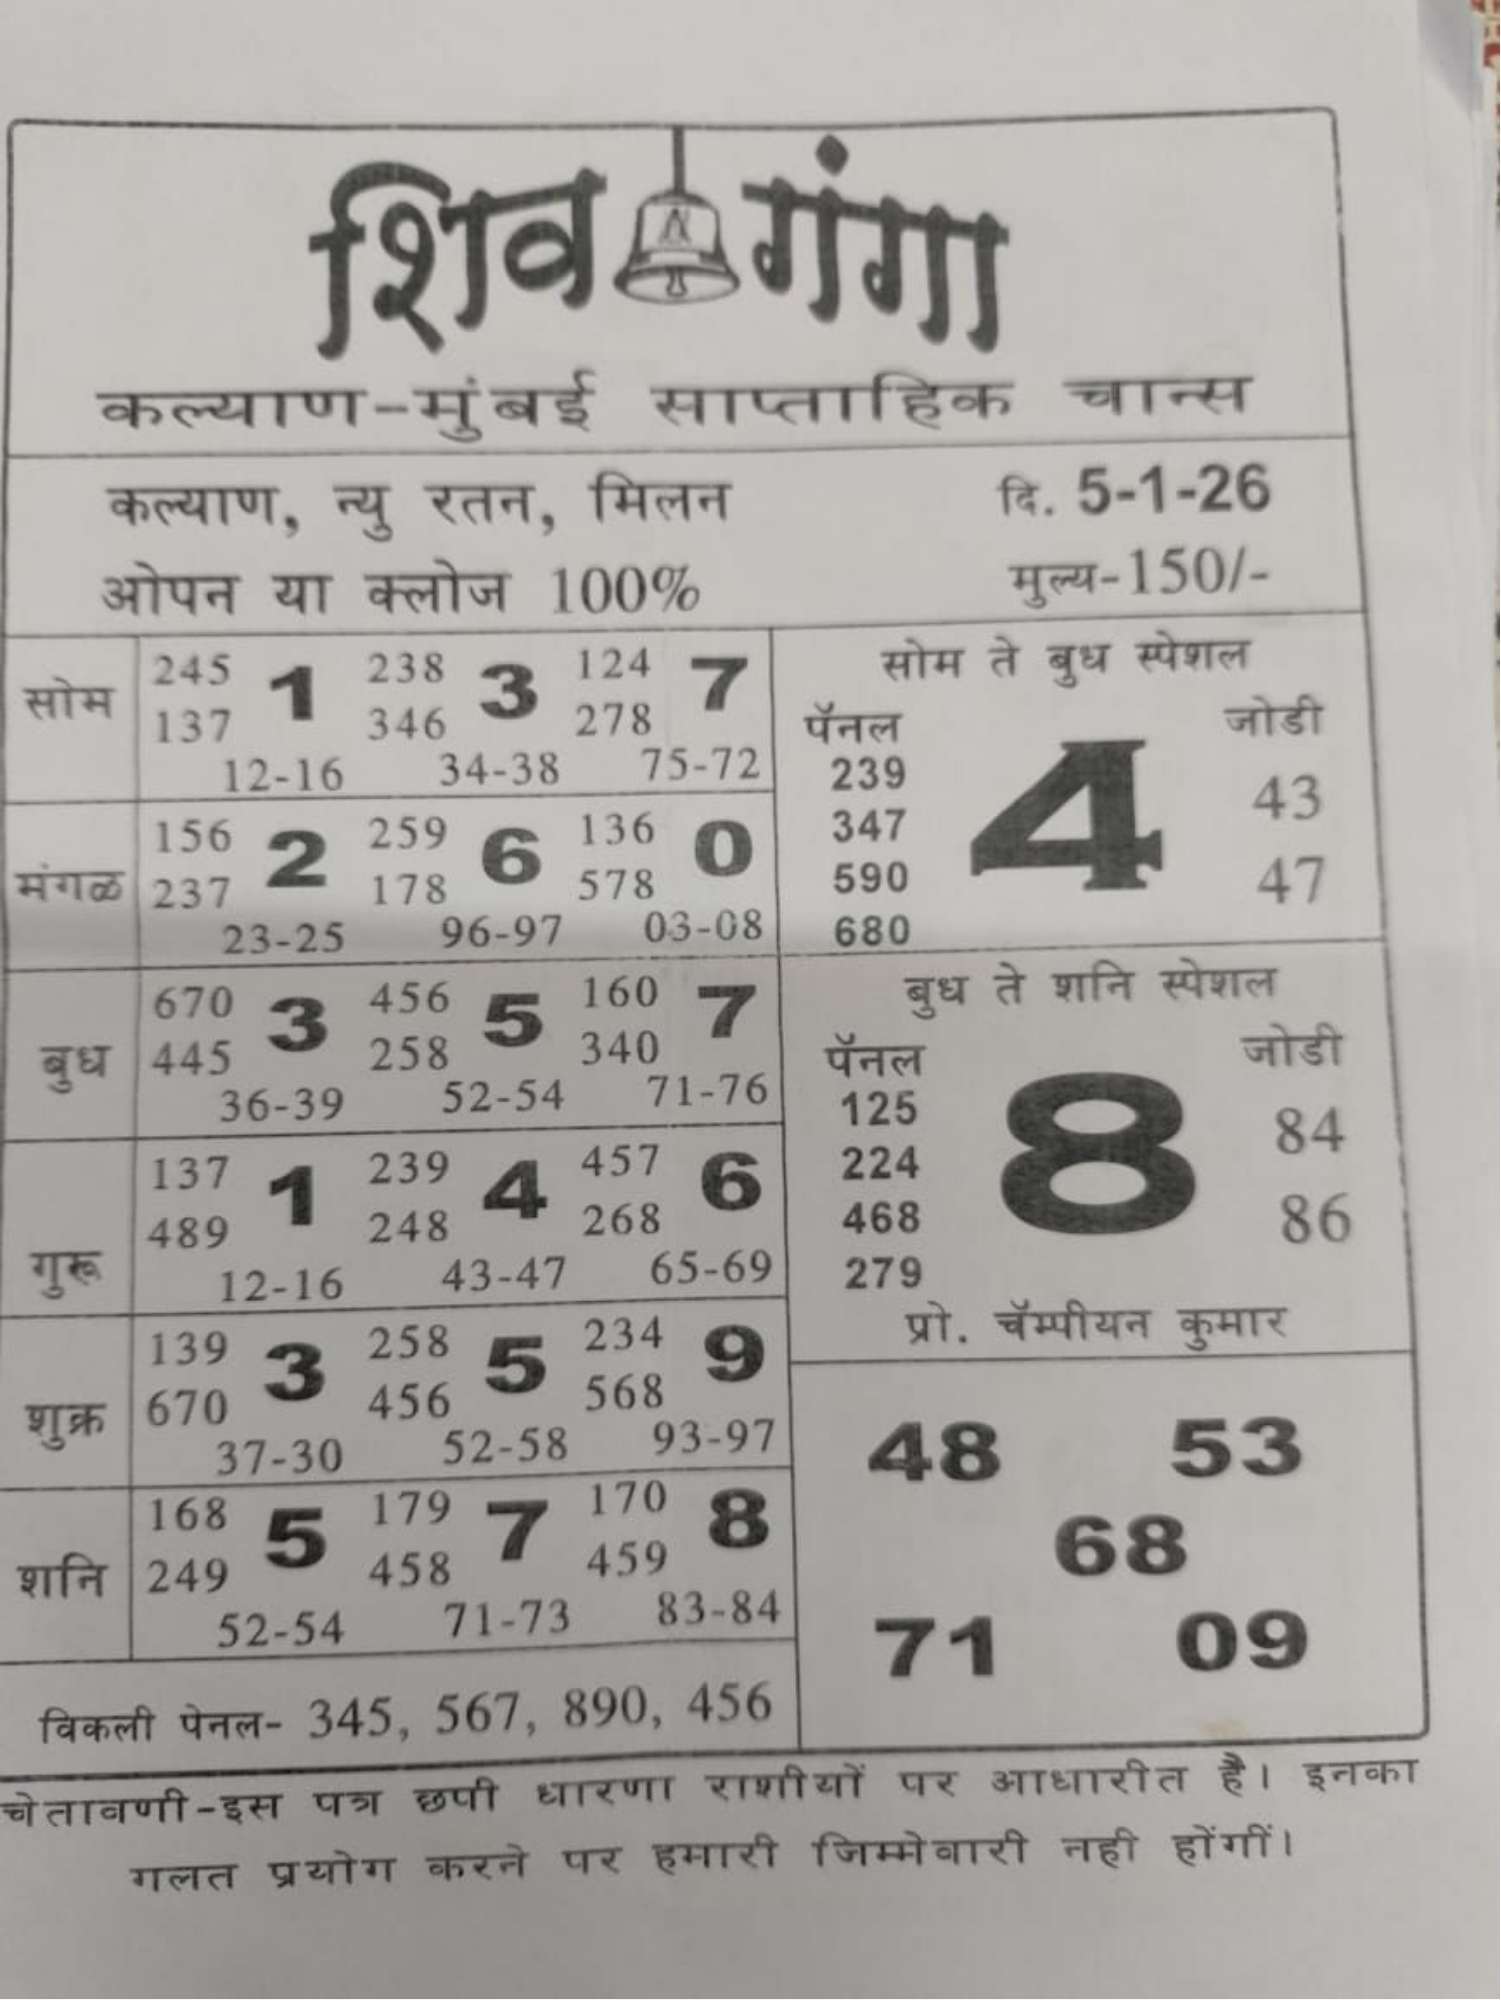 शिव गंगा
कल्याण-मुंबई साप्ताहिक चान्स
कल्याण, न्यु रतन, मिलन
ओपन या क्लोज 100%
दि. 5-1-26
मुल्य-150/-
सोम
245 1 238 3 124 7
137 346 278
12-16 34-38 75-72
मंगळ
156 2 259 6 136 0
237 178 578
23-25 96-97 03-08
बुध
670 3 456 5 160 7
445 258 340
36-39 52-54 71-76
गुरू
137 1 239 4 457 6
489 248 268
12-16 43-47 65-69
शुक्र
139 3 258 5 234 9
670 456 568
37-30 52-58 93-97
शनि
168 5 179 7 170 8
249 458 459
52-54 71-73 83-84
विकली पेनल- 345, 567, 890, 456
सोम ते बुध स्पेशल
पॅनल जोडी
239
347
590
680
4
43
47
बुध ते शनि स्पेशल
पॅनल जोडी
125
224
468
279
8
84
86
प्रो. चॅम्पीयन कुमार
48 53
68
71 09
चेतावणी-इस पत्र छपी धारणा राशीयों पर आधारीत है। इनका
गलत प्रयोग करने पर हमारी जिम्मेवारी नही होंगीं।